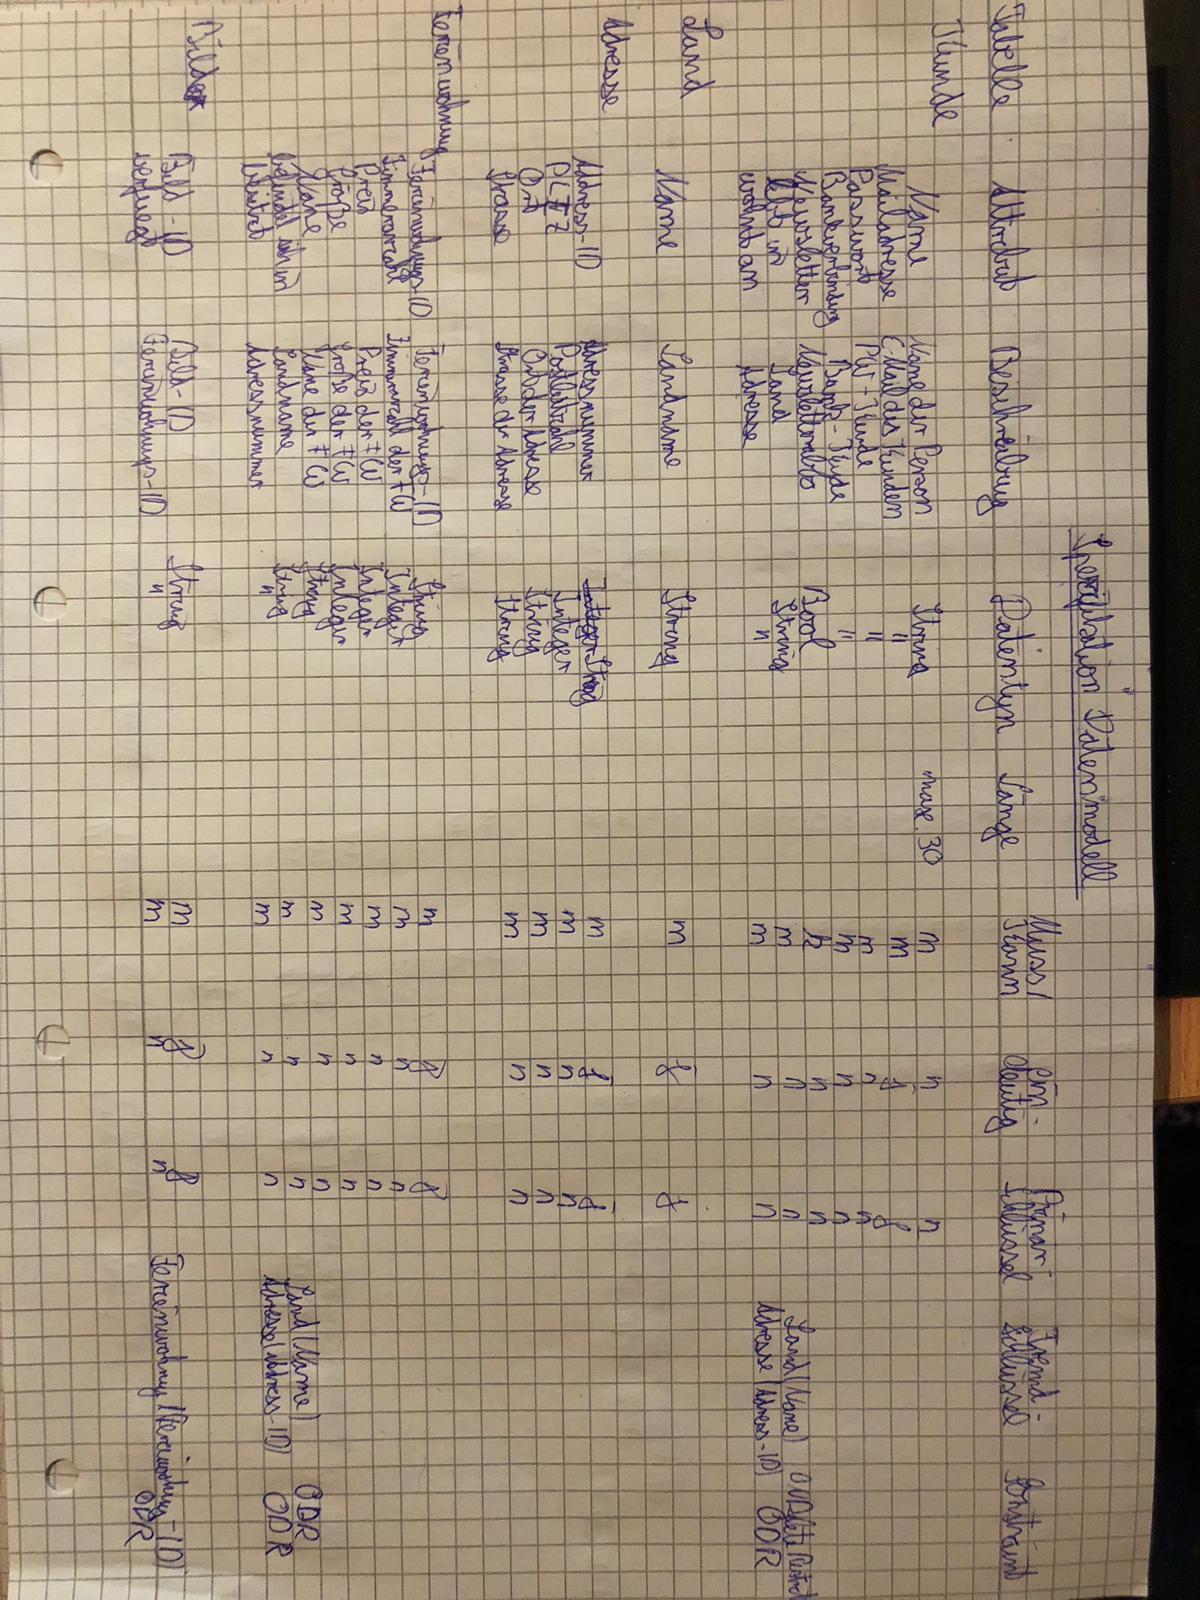 Spezifikation Datenmodell
Tabelle Attribut Beschreibung Datentyp Länge Muss/Kann Ein-deutig Primär-schlüssel Fremd-schlüssel Constraint
Kunde
Name Name der Person String max. 30 m n n
Mailadresse E-Mail des Kunden " m j j
Passwort PW-Kunde " m n n
Bankverbindung Bankv-Kunde " m n n
Newsletter Newsletterabo Bool k n n
lebt in Land String m n n Land (Name) On Delete Restrict
wohnt an Adresse " m n n Adresse (Adress-ID) ODR
Land
Name Landname String m j j
Adresse
Adress-ID Adressnummer String m j j
PLZ Postleitzahl Integer m n n
Ort Ort der Adresse String m n n
Strasse Strasse der Adresse String m n n
Ferienwohnung
Ferienwohnungs-ID Ferienwohnungs-ID String m j j
Zimmeranzahl Zimmerzahl der FW Integer m n n
Preis Preis der FW Integer m n n
Größe Größe der FW Integer m n n
Name Name der FW String m n n
befindet sich in Landname String m n n Land (Name) ODR
besitzt Adressnummer " m n n Adresse (Adress-ID) ODR
Bilder
Bild-ID Bild-ID String m j j
verfuegt Ferienwohnungs-ID " m n n Ferienwohnung (Ferienwohnung-ID) ODR